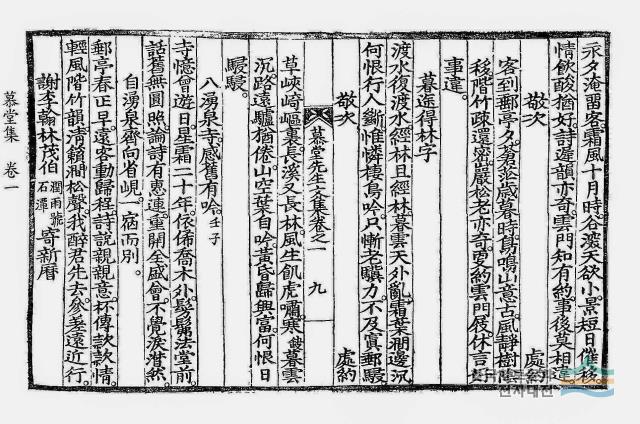 永夕淹留客。霜風十月時。谷深天欲小。景短日催移。
情飮酸猶好。詩遲韻亦奇。雲門知有約。事後莫相違。
敬次 處約
客到郵亭夕。蒼茫歲暮時。鳥鳴山意古。風靜樹陰
移。階竹疏還密。巖松老亦奇。更約雲門屐。休言好
事違。
暮途得林字
渡水復渡水。經林且經林。暮雲天外亂。霜葉澗邊沉。
何恨行人斷。惟憐棲鳥吟。只慚老驥力。不及寘郵駸。
敬次 處約
慕堂先生文集卷之一 九
草峽崎嶇裏。長溪又長林。風生飢虎嘯。寒餞暮雲
沉。路遠驢猶倦。山空葉自吟。黃昏歸興富。何恨日
駸駸。
入湧泉寺。感舊有吟。壬子
寺憶曾遊日。星霜二十年。依俙喬木外。髣髴法堂前。
話舊無圓照。論詩有惠連。重開全盛會。不覺淚潸然。
自湧泉齊向省峴。一宿而別。
郵亭春正早。遠客動歸程。詩說親親意。杯傳款款情。
輕風階竹韻。淸籟澗松聲。我醉君先去。參差遠近行。
謝李翰林茂伯 潤雨號石潭 寄新曆
慕堂集 卷一